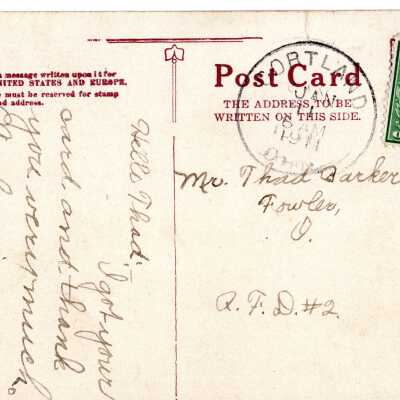 message written upon it for
UNITED STATES AND EUROPE.
must be reserved for stamp
and address.
Post Card
THE ADDRESS TO BE
WRITTEN ON THIS SIDE.
PORTLAND
JAN
8 AM
1911
OHIO
Mr. Thad Barker
Fowler,
O.
R.F.D. #2.
Hello Thad:—
I got your
card and thank
you very much.